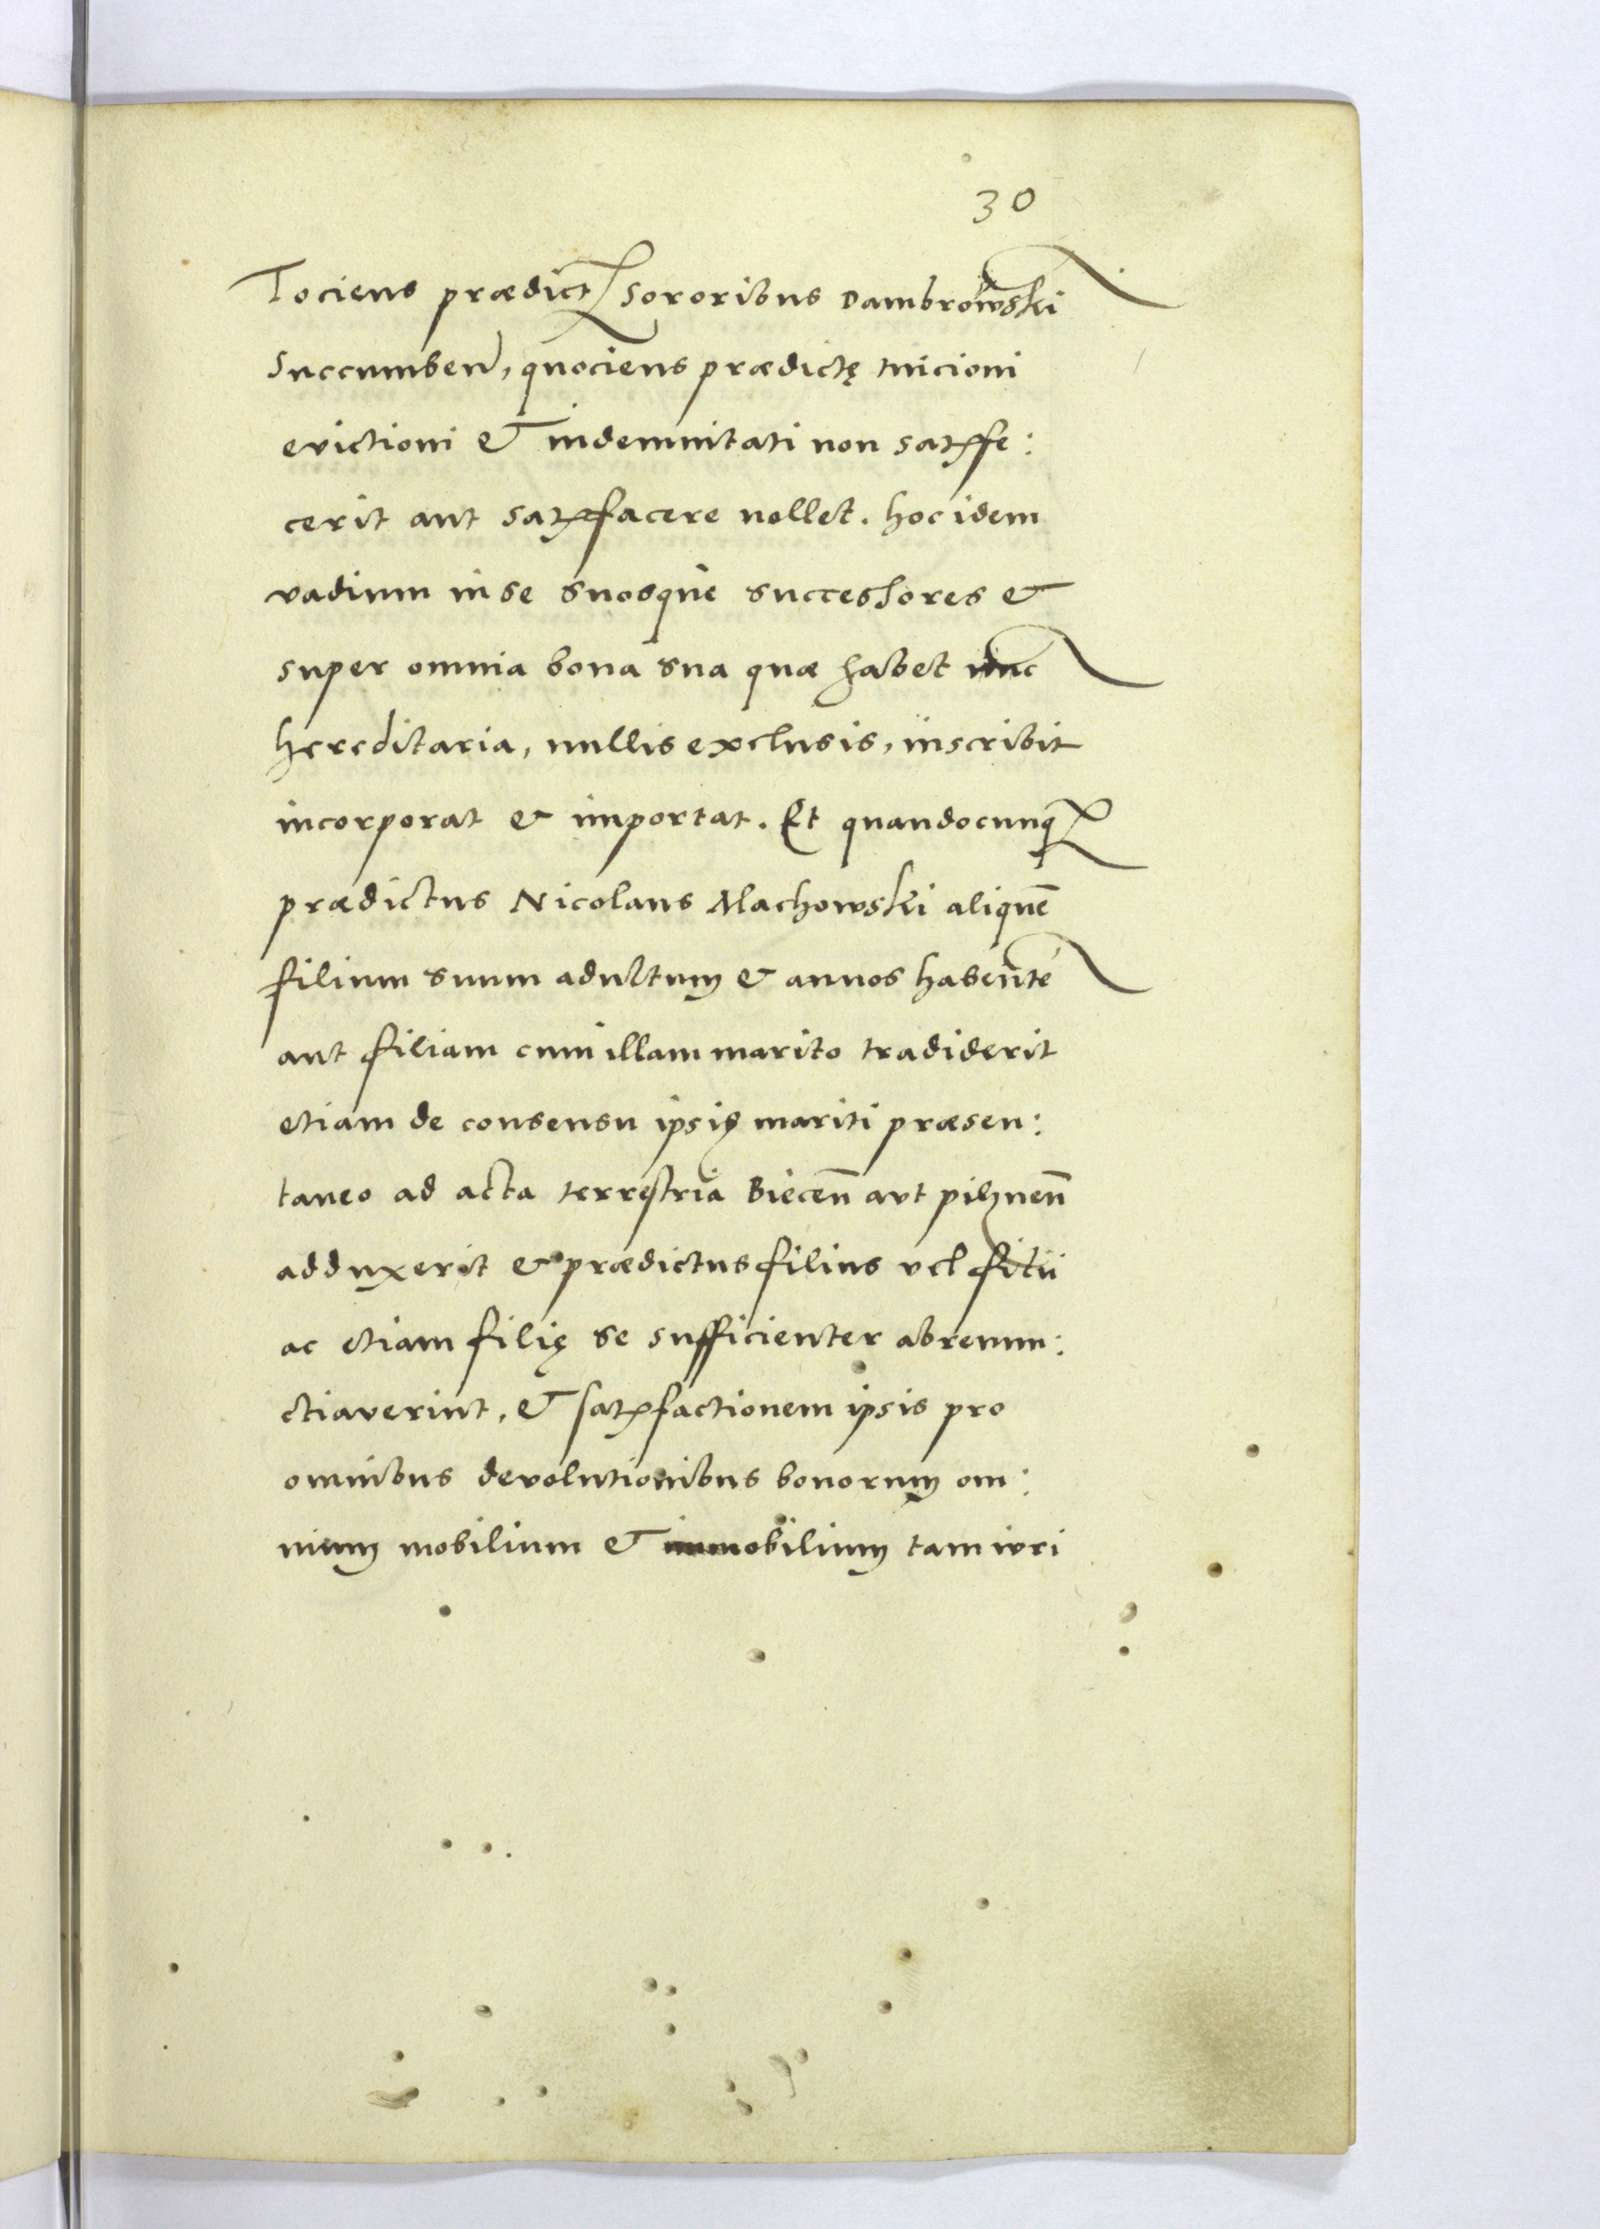 30
Tociens prædict sororibus Dambrowski
succumben, quociens prædictę tuicioni
evictioni & indemnitati non satisfe:
cerit aut satisfacere nollet. hoc idem
vadium in se suosque successores &
super omnia bona sua quæ habet nunc
hereditaria, nullis exclusis, inscribit
incorporat & importat. Et quandocunq
prædictus Nicolaus Machowski aliquē
filium suum adultum & annos habentē
aut filiam cum illam marito tradiderit
etiam de consensu ipsius mariti præsen:
taneo ad acta terrestria Biecen̄ aut pilznen̄
adduxerit & prædictus filius vel filii
ac etiam filię se sufficienter abrenun:
ctiaverint, & satisfactionem ipsis pro
omnibus devolutionibus bonorum om:
nium mobilium & immobilium tam iuri